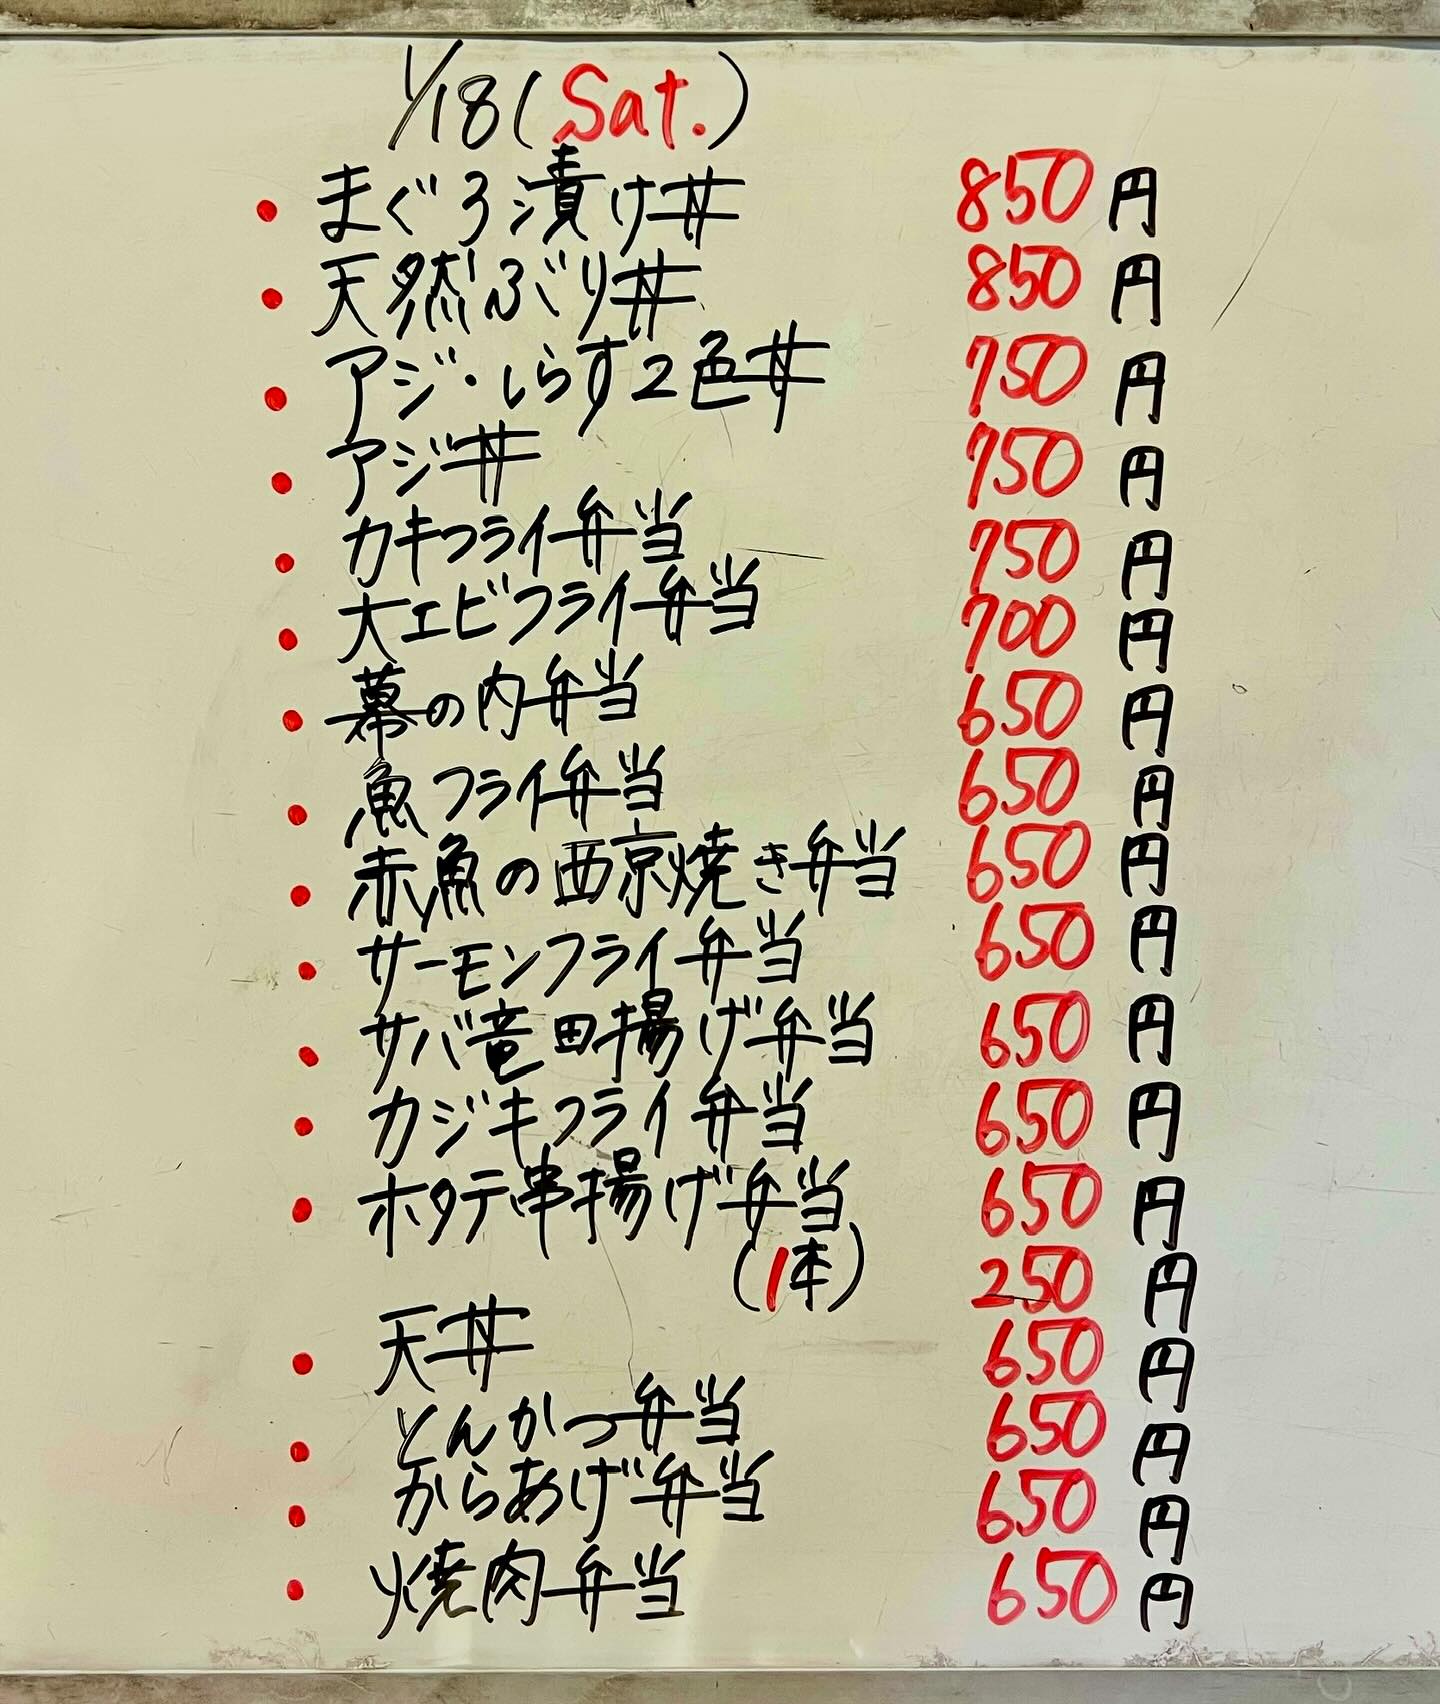 1/18(Sat.)
・まぐろ漬け丼 850円
・天然ぶり丼 850円
・アジ・しらす2色丼 750円
・アジ丼 750円
・カキフライ弁当 750円
・大エビフライ弁当 700円
・幕の内弁当 650円
・魚フライ弁当 650円
・赤魚の西京焼き弁当 650円
・サーモンフライ弁当 650円
・サバ竜田揚げ弁当 650円
・カジキフライ弁当 650円
・ホタテ串揚げ弁当 650円
(1本) 250円
・天丼 650円
・とんかつ弁当 650円
・からあげ弁当 650円
・焼肉弁当 650円